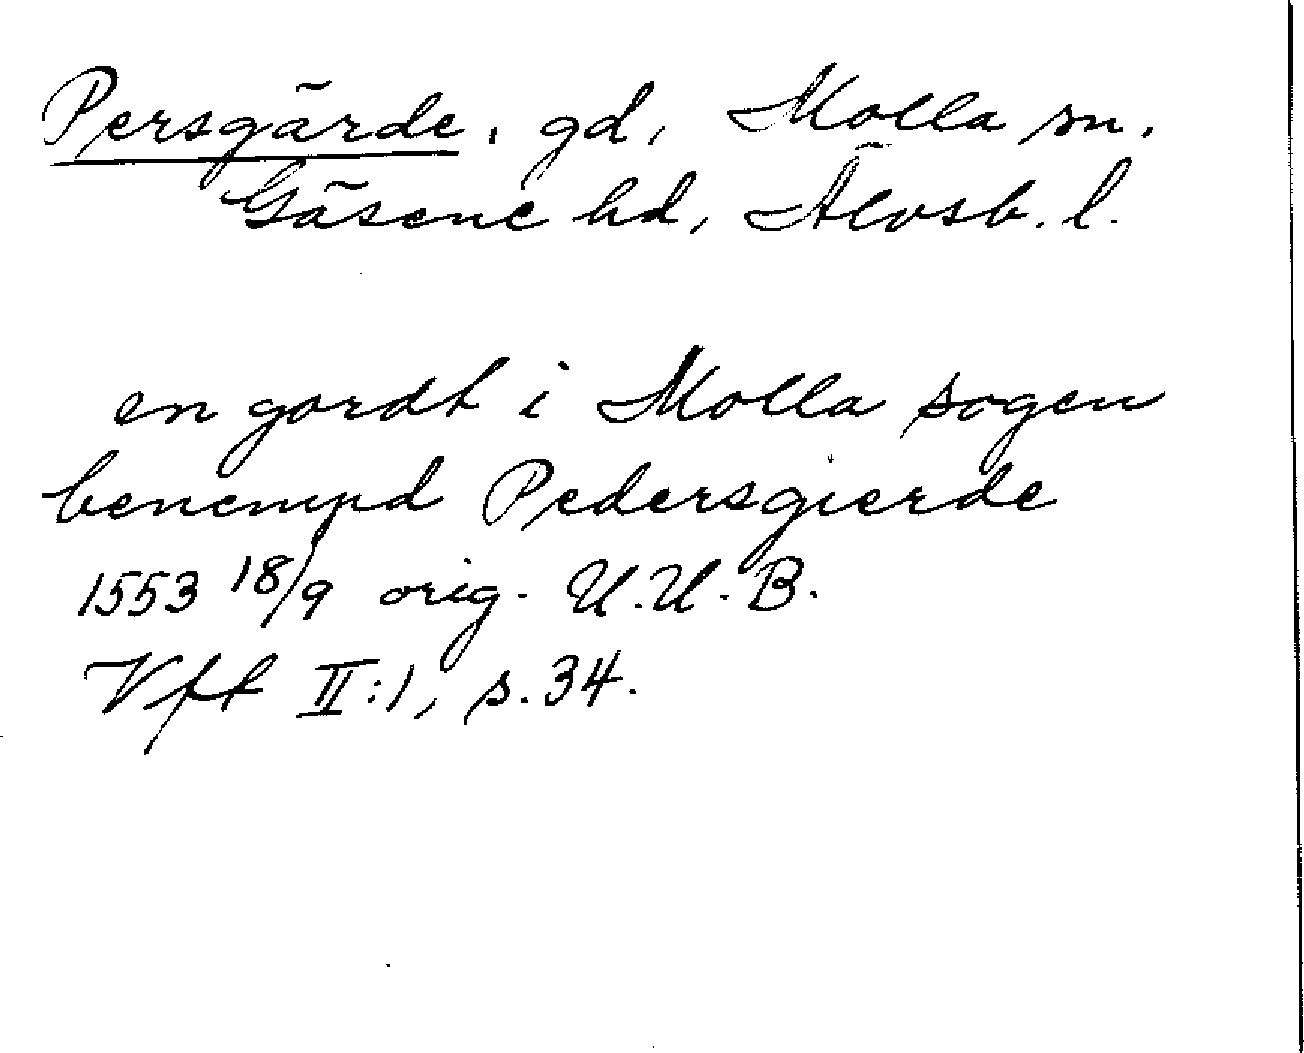 Persgärde, gd, Molla sn.
Gäsene hd, Älvsb. l.
en gordt i Molla sogen
benempd Pedersgierde
1553 18/9 orig. U.U.B.
Vff II:1, s. 34.